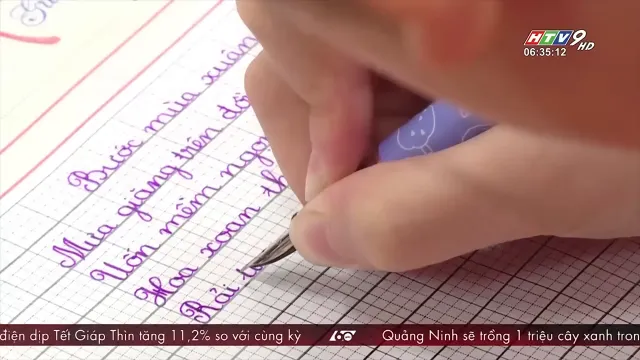 HTV9 HD
06:35:12
Bước mùa xuân
Mưa giăng trên đồ
Uốn mềm ngọn
Hoa xoan th
Rải
điện dịp Tết Giáp Thìn tăng 11,2% so với cùng kỳ
60
Quảng Ninh sẽ trồng 1 triệu cây xanh tran